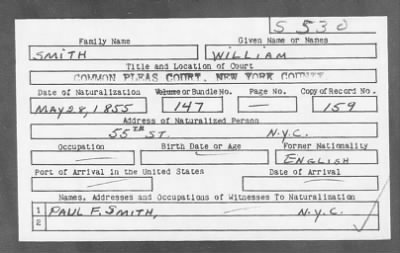 S 530
Family Name Given Name or Names
SMITH WILLIAM
Title and Location of Court
COMMON PLEAS COURT, NEW YORK COUNTY
Date of Naturalization Volume or Bundle No. Page No. Copy of Record No.
MAY 28, 1855 147 — 159
Address of Naturalized Person
55TH ST. N.Y.C.
Occupation Birth Date or Age Former Nationality
ENGLISH
Port of Arrival in the United States Date of Arrival
Names, Addresses and Occupations of Witnesses To Naturalization
1 PAUL F. SMITH, N.Y.C.
2